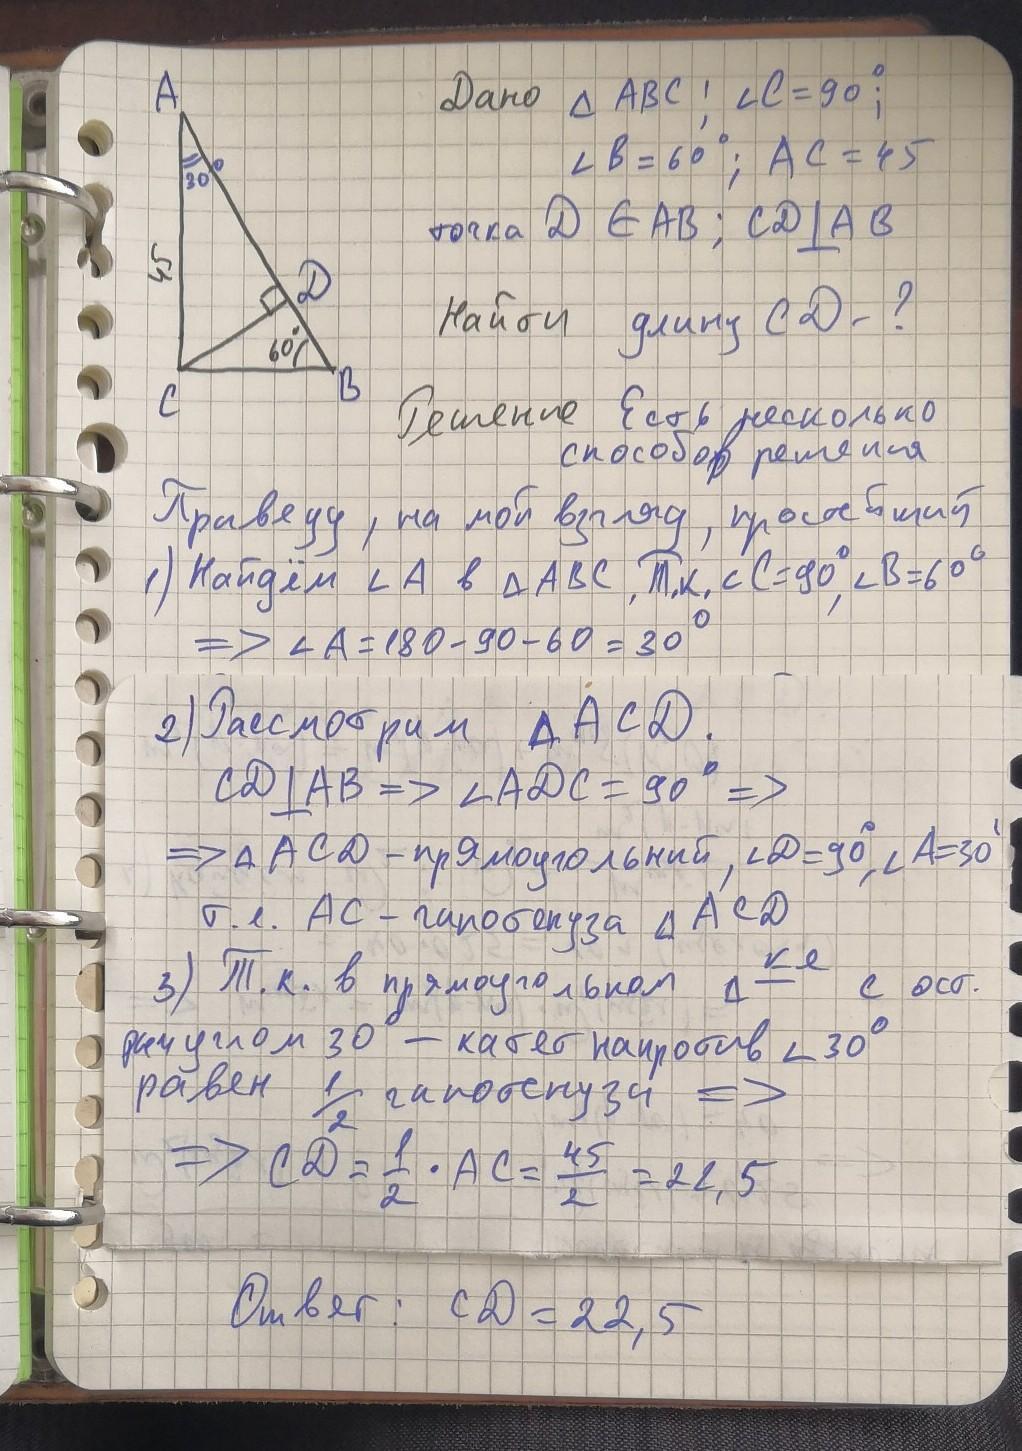 A
30°
45
D
60°
C
B
Дано △ ABC; ∠C=90°;
∠B=60°; AC=45
точка D ∈ AB; CD⊥AB
Найти длину CD-?
Решение Есть несколько
способов решения
Приведу, на мой взгляд, простейший
1) Найдём ∠A в △ABC, Т.к. ∠C=90°, ∠B=60°
=> ∠A=180-90-60=30°
2) Рассмотрим △ACD.
CD⊥AB => ∠ADC=90° =>
=> △ACD - прямоугольный, ∠D=90°, ∠A=30°
т.е. AC - гипотенуза △ACD
3) Т.к. в прямоугольном △-ке с ост.
углом 30° — катет напротив ∠30°
равен 1/2 гипотенузы =>
=> CD=1/2·AC=45/2=22,5
Ответ: CD=22,5